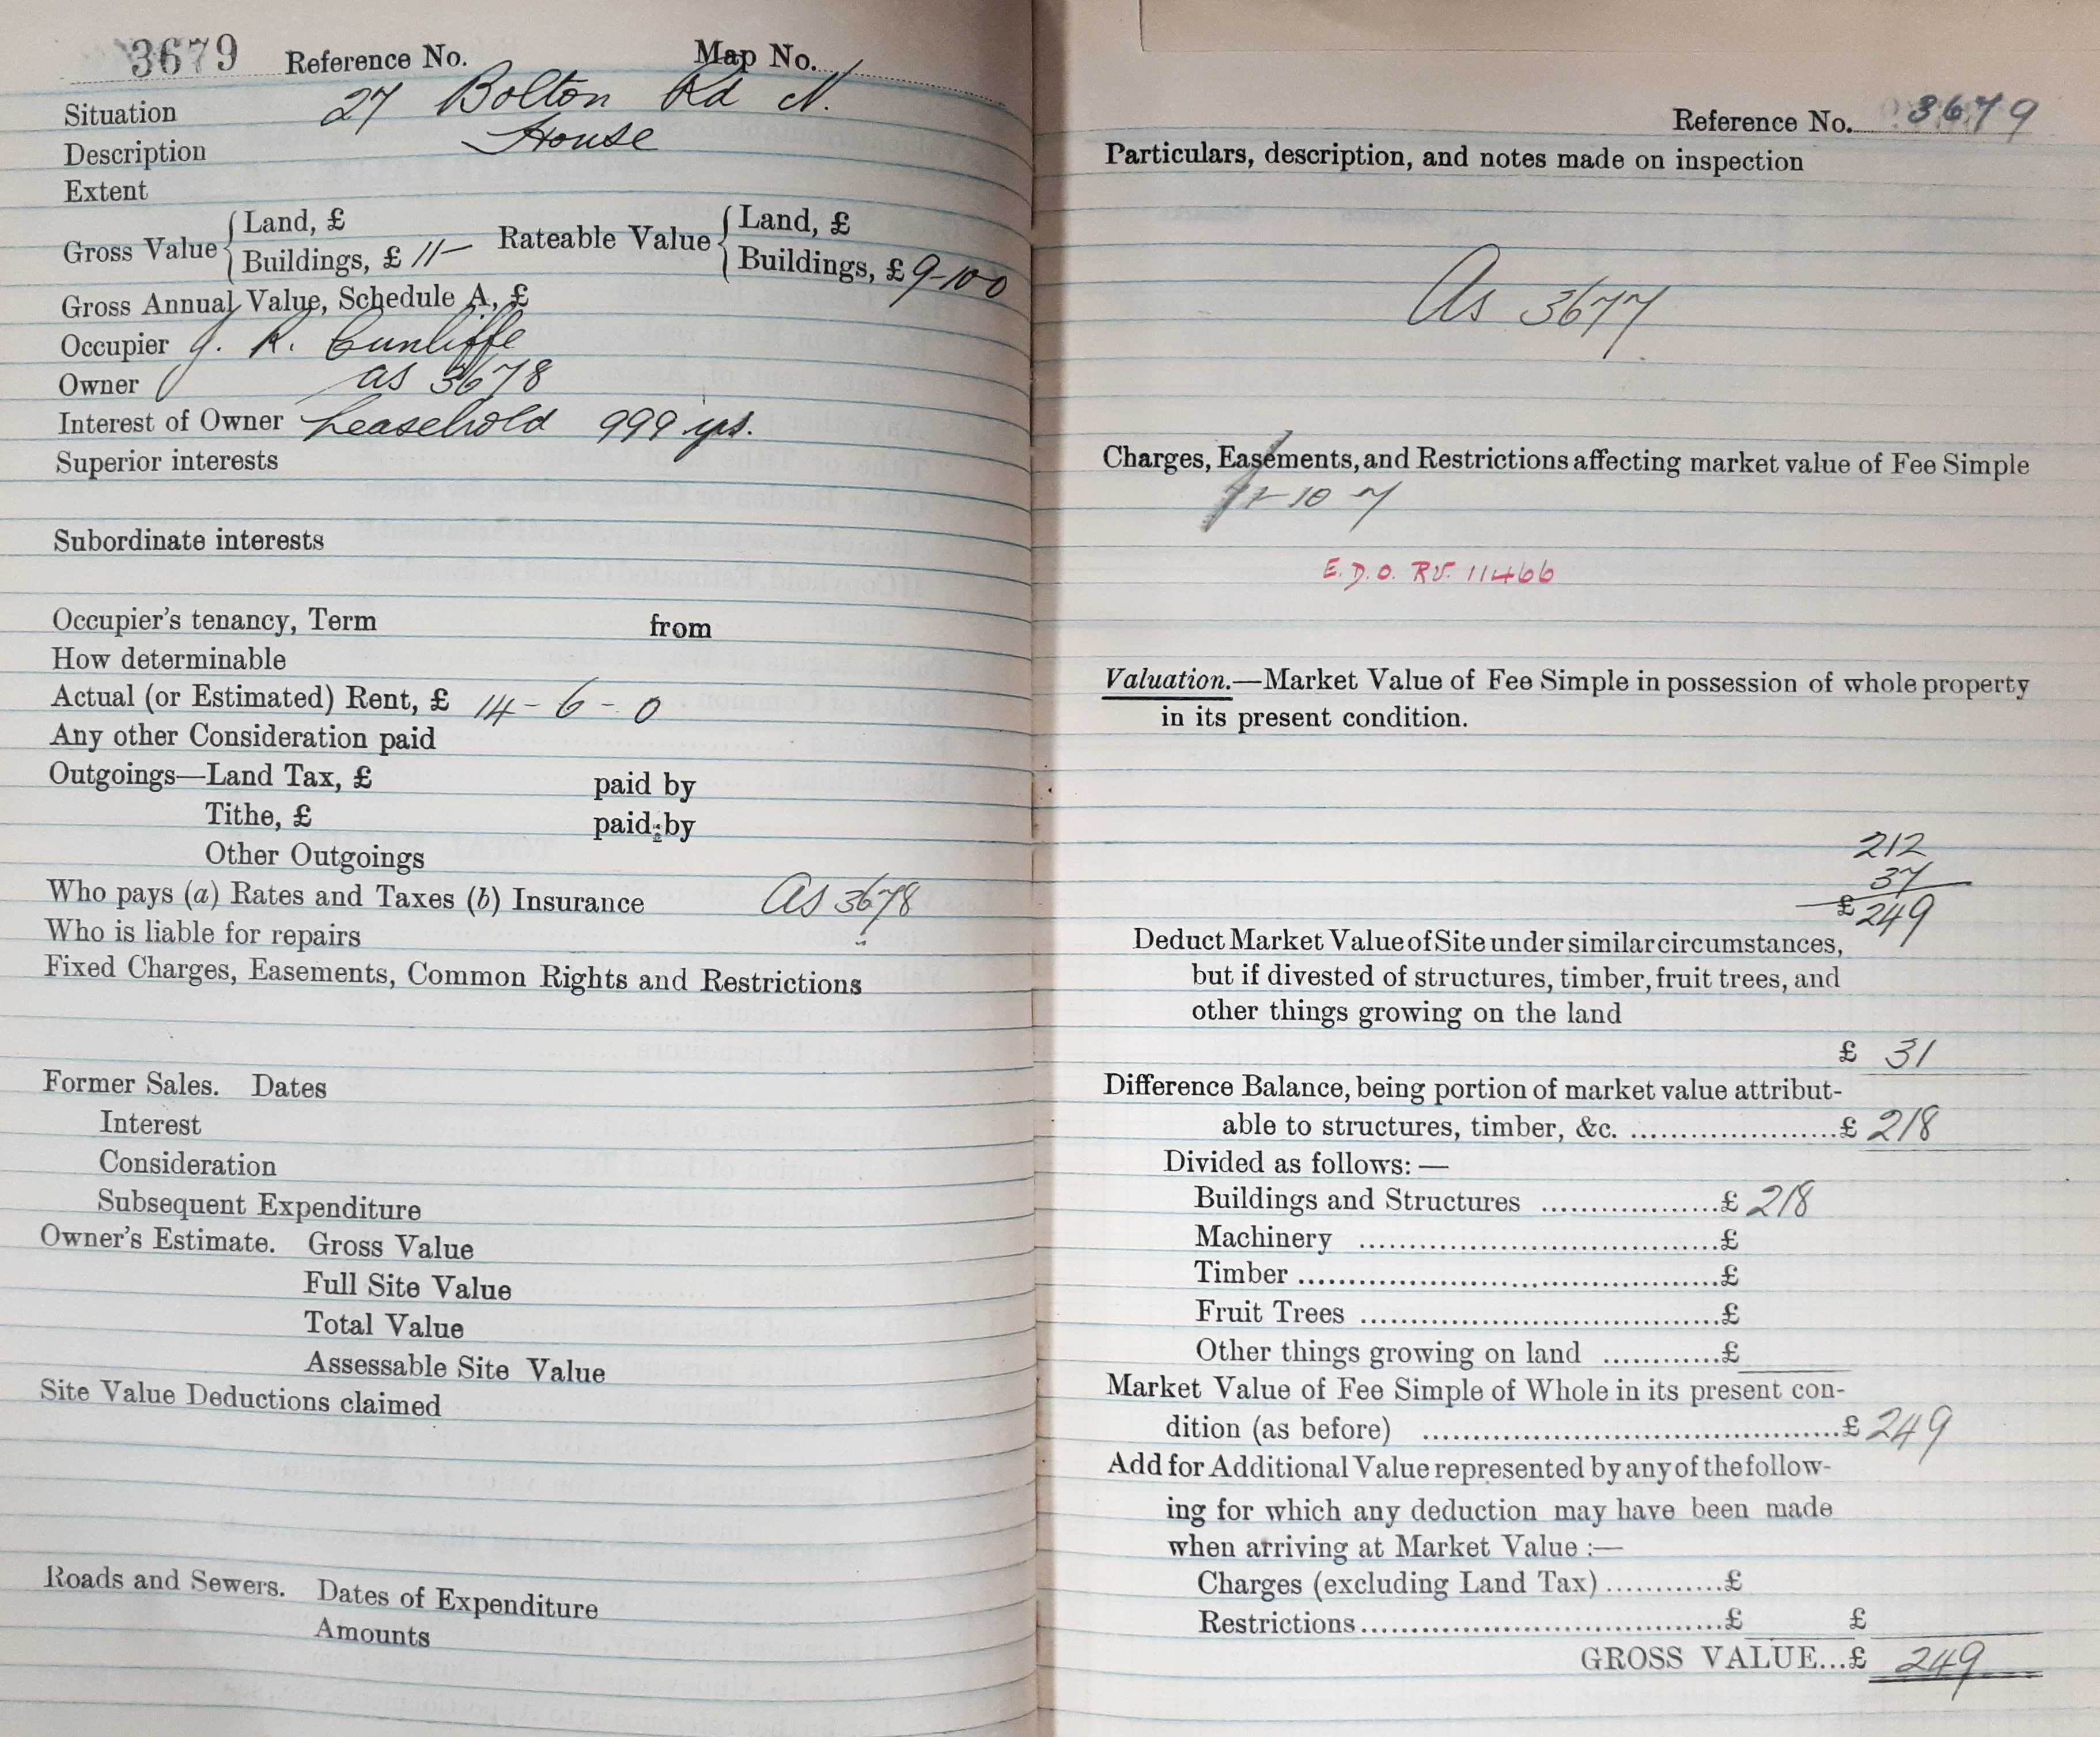 3679 Reference No. Map No.
Situation 27 Bolton Rd N.
Description House
Extent
Gross Value { Land, £ Rateable Value { Land, £
Buildings, £ 11- Buildings, £ 9-10-0
Gross Annual Value, Schedule A, £
Occupier J. R. Cunliffe
Owner as 3678
Interest of Owner Leasehold 999 yrs.
Superior interests
Subordinate interests
Occupier's tenancy, Term from
How determinable
Actual (or Estimated) Rent, £ 14-6-0
Any other Consideration paid
Outgoings—Land Tax, £ paid by
Tithe, £ paid by
Other Outgoings
Who pays (a) Rates and Taxes (b) Insurance As 3678
Who is liable for repairs
Fixed Charges, Easements, Common Rights and Restrictions
Former Sales. Dates
Interest
Consideration
Subsequent Expenditure
Owner's Estimate. Gross Value
Full Site Value
Total Value
Assessable Site Value
Site Value Deductions claimed
Roads and Sewers. Dates of Expenditure
Amounts
Reference No. 3679
Particulars, description, and notes made on inspection
As 3677
Charges, Easements, and Restrictions affecting market value of Fee Simple
1-10-7
E.D.O. RV. 11466
Valuation.—Market Value of Fee Simple in possession of whole property
in its present condition.
212
37
£ 249
Deduct Market Value of Site under similar circumstances,
but if divested of structures, timber, fruit trees, and
other things growing on the land
£ 31
Difference Balance, being portion of market value attribut-
able to structures, timber, &c. ........................£ 218
Divided as follows:—
Buildings and Structures ..................£ 218
Machinery ....................................£
Timber ..........................................£
Fruit Trees ....................................£
Other things growing on land ............£
Market Value of Fee Simple of Whole in its present con-
dition (as before) ..........................................£ 249
Add for Additional Value represented by any of the follow-
ing for which any deduction may have been made
when arriving at Market Value :—
Charges (excluding Land Tax) ............£
Restrictions....................................£ £
GROSS VALUE...£ 249